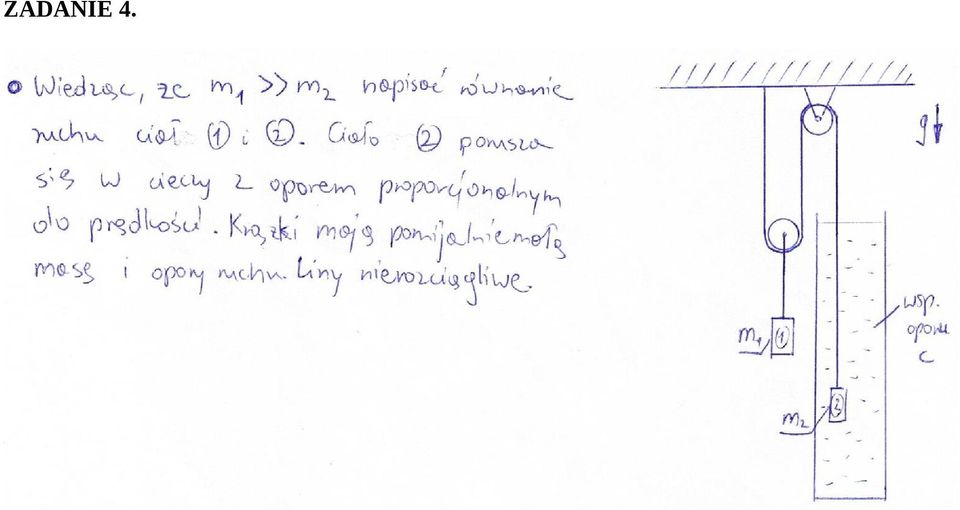 ZADANIE 4.
Wiedząc, że m₁ >> m₂ napisać równanie
ruchu ciał ① i ②. Ciało ② porusza
się w cieczy z oporem proporcjonalnym
do prędkości. Krążki mają pomijalnie małą
masę i opory ruchu. Liny nierozciągliwe.
g
wsp.
oporu
c
m₁ ①
m₂ ②